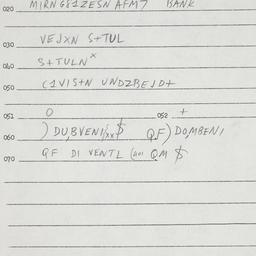 020 MIRNG81ZESN AFM7 BANK
030 VEJXN S+TUL
040 S+TULN x
050 C1VIS+N UNDZBEJD+
051 0 052 +
060 ) DU,BVENI/xx$ QF) DOMBENI
070 QF DI VENTL QM $